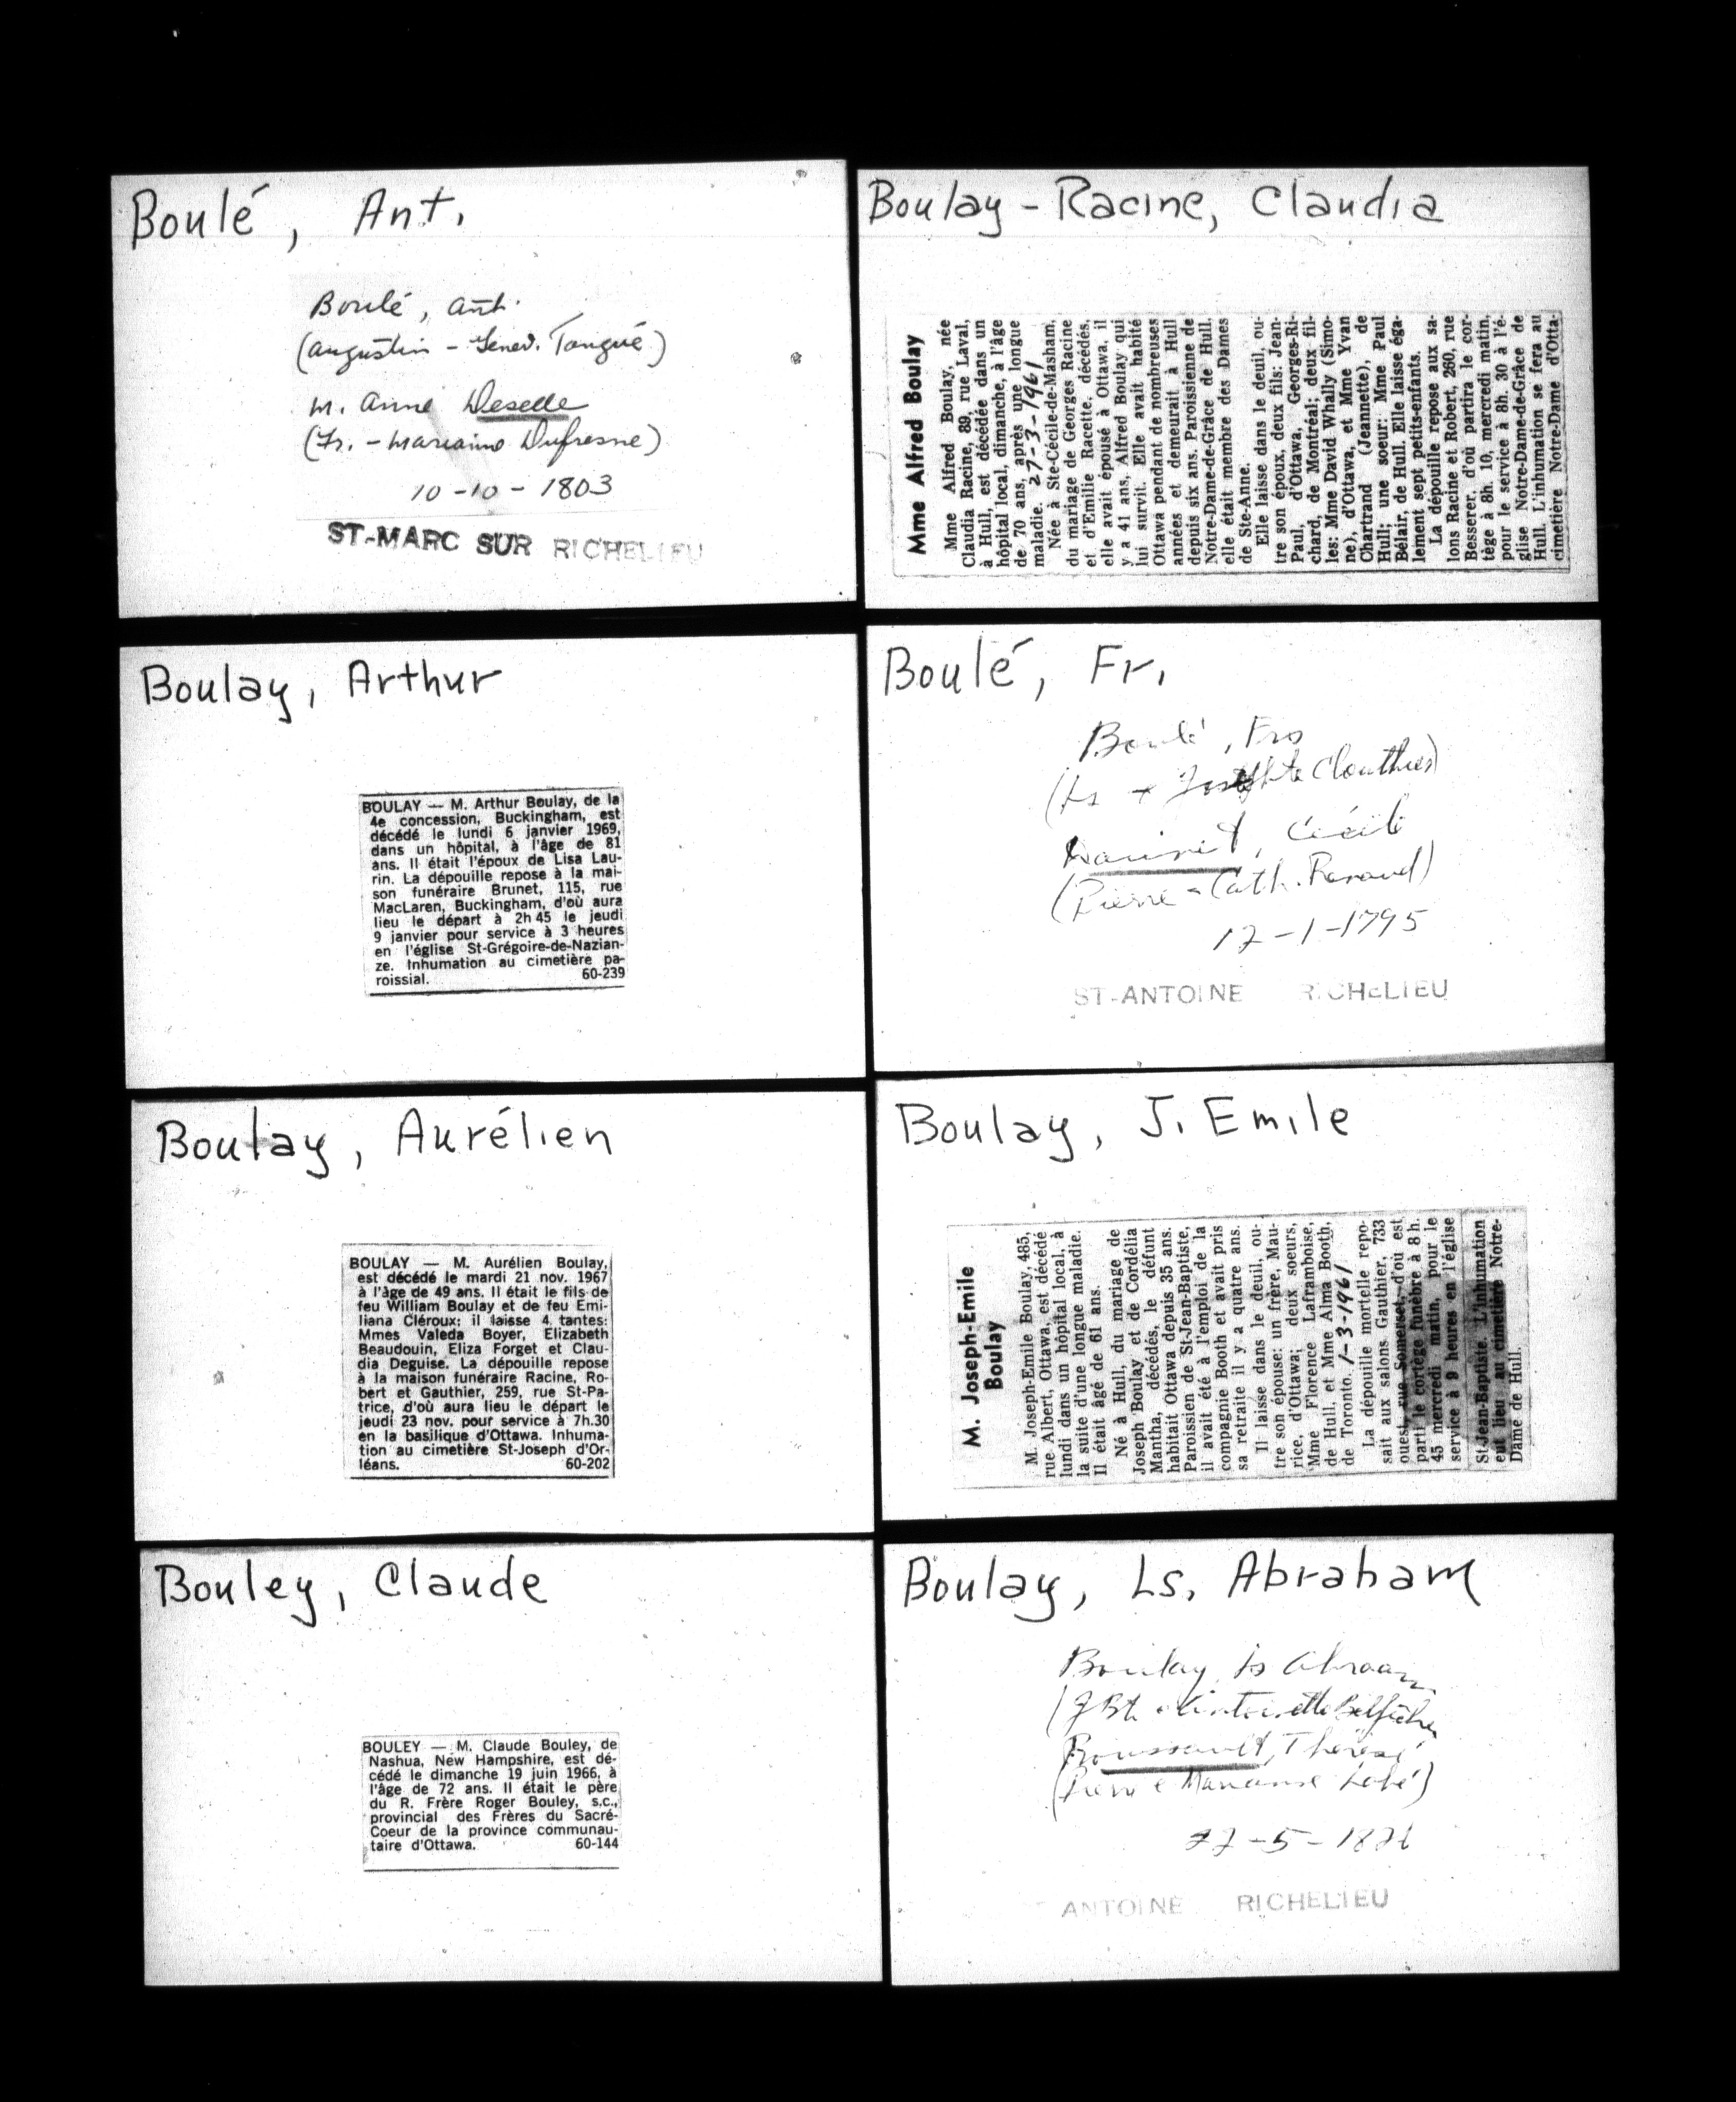 Boulé, Ant.
Boulé, Ant.
(Augustin - Genev. Tangué)
m. Anne Deselle
(Fr. - Marianne Dufresne)
10-10-1803
ST-MARC SUR RICHELIEU
Boulay, Arthur
BOULAY — M. Arthur Boulay, de la
4e concession, Buckingham, est
décédé le lundi 6 janvier 1969,
dans un hôpital, à l'âge de 81
ans. Il était l'époux de Lisa Lau-
rin. La dépouille repose à la mai-
son funéraire Brunet, 115, rue
MacLaren, Buckingham, d'où aura
lieu le départ à 2h 45 le jeudi
9 janvier pour service à 3 heures
en l'église St-Grégoire-de-Nazian-
ze. Inhumation au cimetière pa-
roissial. 60-239
Boulay, Aurélien
BOULAY — M. Aurélien Boulay,
est décédé le mardi 21 nov. 1967
à l'âge de 49 ans. Il était le fils de
feu William Boulay et de feu Emi-
liana Cléroux; il laisse 4 tantes:
Mmes Valeda Boyer, Elizabeth
Beaudouin, Eliza Forget et Clau-
dia Deguise. La dépouille repose
à la maison funéraire Racine, Ro-
bert et Gauthier, 259, rue St-Pa-
trice, d'où aura lieu le départ le
jeudi 23 nov. pour service à 7h.30
en la basilique d'Ottawa. Inhuma-
tion au cimetière St-Joseph d'Or-
léans. 60-202
Bouley, Claude
BOULEY — M. Claude Bouley, de
Nashua, New Hampshire, est dé-
cédé le dimanche 19 juin 1966, à
l'âge de 72 ans. Il était le père
du R. Frère Roger Bouley, s.c.,
provincial des Frères du Sacré-
Coeur de la province communau-
taire d'Ottawa. 60-144
Boulay-Racine, Claudia
Mme Alfred Boulay
Mme Alfred Boulay, née
Claudia Racine, 89, rue Laval,
à Hull, est décédée dans un
hôpital local, dimanche, à l'âge
de 70 ans, après une longue
maladie. 27-3-1961
Née à Ste-Cécile-de-Masham,
du mariage de Georges Racine
et d'Emilie Racette, décédés,
elle avait épousé à Ottawa, il
y a 41 ans, Alfred Boulay qui
lui survit. Elle avait habité
Ottawa pendant de nombreuses
années et demeurait à Hull
depuis six ans. Paroissienne de
Notre-Dame-de-Grâce de Hull,
elle était membre des Dames
de Ste-Anne.
Elle laisse dans le deuil, ou-
tre son époux, deux fils: Jean-
Paul, d'Ottawa, Georges-Ri-
chard, de Montréal; deux fil-
les: Mme David Whally (Simo-
ne), d'Ottawa, et Mme Yvan
Chartrand (Jeannette), de
Hull; une soeur: Mme Paul
Bélair, de Hull. Elle laisse éga-
lement sept petits-enfants.
La dépouille repose aux sa-
lons Racine et Robert, 260, rue
Besserer, d'où partira le cor-
tège à 8h. 10, mercredi matin,
pour le service à 8h. 30 à l'é-
glise Notre-Dame-de-Grâce de
Hull. L'inhumation se fera au
cimetière Notre-Dame d'Otta-
Boulé, Fr.
Boulé, Frs
(Ls + Josephte Clouthier)
Cécile
(Pierre - Cath. Renaud)
17-1-1795
ST-ANTOINE RICHELIEU
Boulay, J. Emile
M. Joseph-Emile
Boulay
M. Joseph-Emile Boulay, 485,
rue Albert, Ottawa, est décédé
lundi dans un hôpital local, à
la suite d'une longue maladie.
Il était âgé de 61 ans.
Né à Hull, du mariage de
Joseph Boulay et de Cordélia
Mantha, décédés, le défunt
habitait Ottawa depuis 35 ans.
Paroissien de St-Jean-Baptiste,
il avait été à l'emploi de la
compagnie Booth et avait pris
sa retraite il y a quatre ans.
Il laisse dans le deuil, ou-
tre son épouse: un frère, Mau-
rice, d'Ottawa; deux soeurs,
Mme Florence Laframboise,
de Hull, et Mme Alma Booth,
de Toronto. 1-3-1961
La dépouille mortelle repo-
sait aux salons Gauthier, 733
ouest, rue Somerset, d'où est
parti le cortège funèbre à 8 h.
45 mercredi matin, pour le
service à 9 heures en l'église
St-Jean-Baptiste. L'inhumation
eut lieu au cimetière Notre-
Dame de Hull.
Boulay, Ls. Abraham
Boulay, Ls Abraam
(J Bte Antoinette
Thérèse
(Pierre Marianne
ANTOINE RICHELIEU